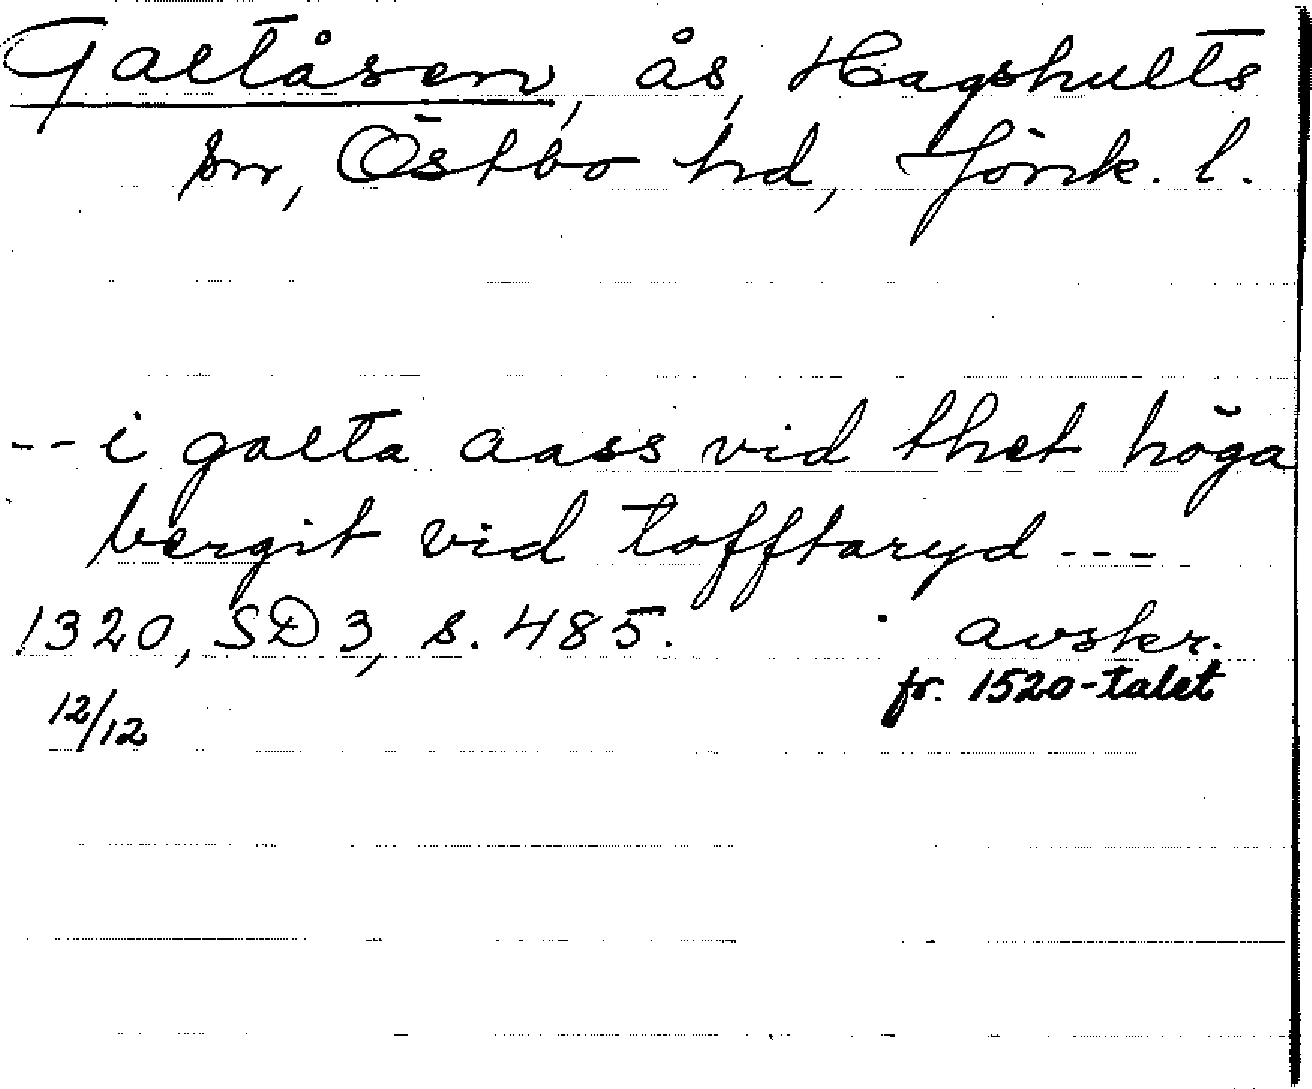 Galtåsen, ås, Hagshults
sn, Östbo hd, Jönk. l.
-- i galta aass vid thet höga
bergit vid tofftaryd ---
1320, SD 3, s. 485. avskr.
fr. 1520-talet
12/12